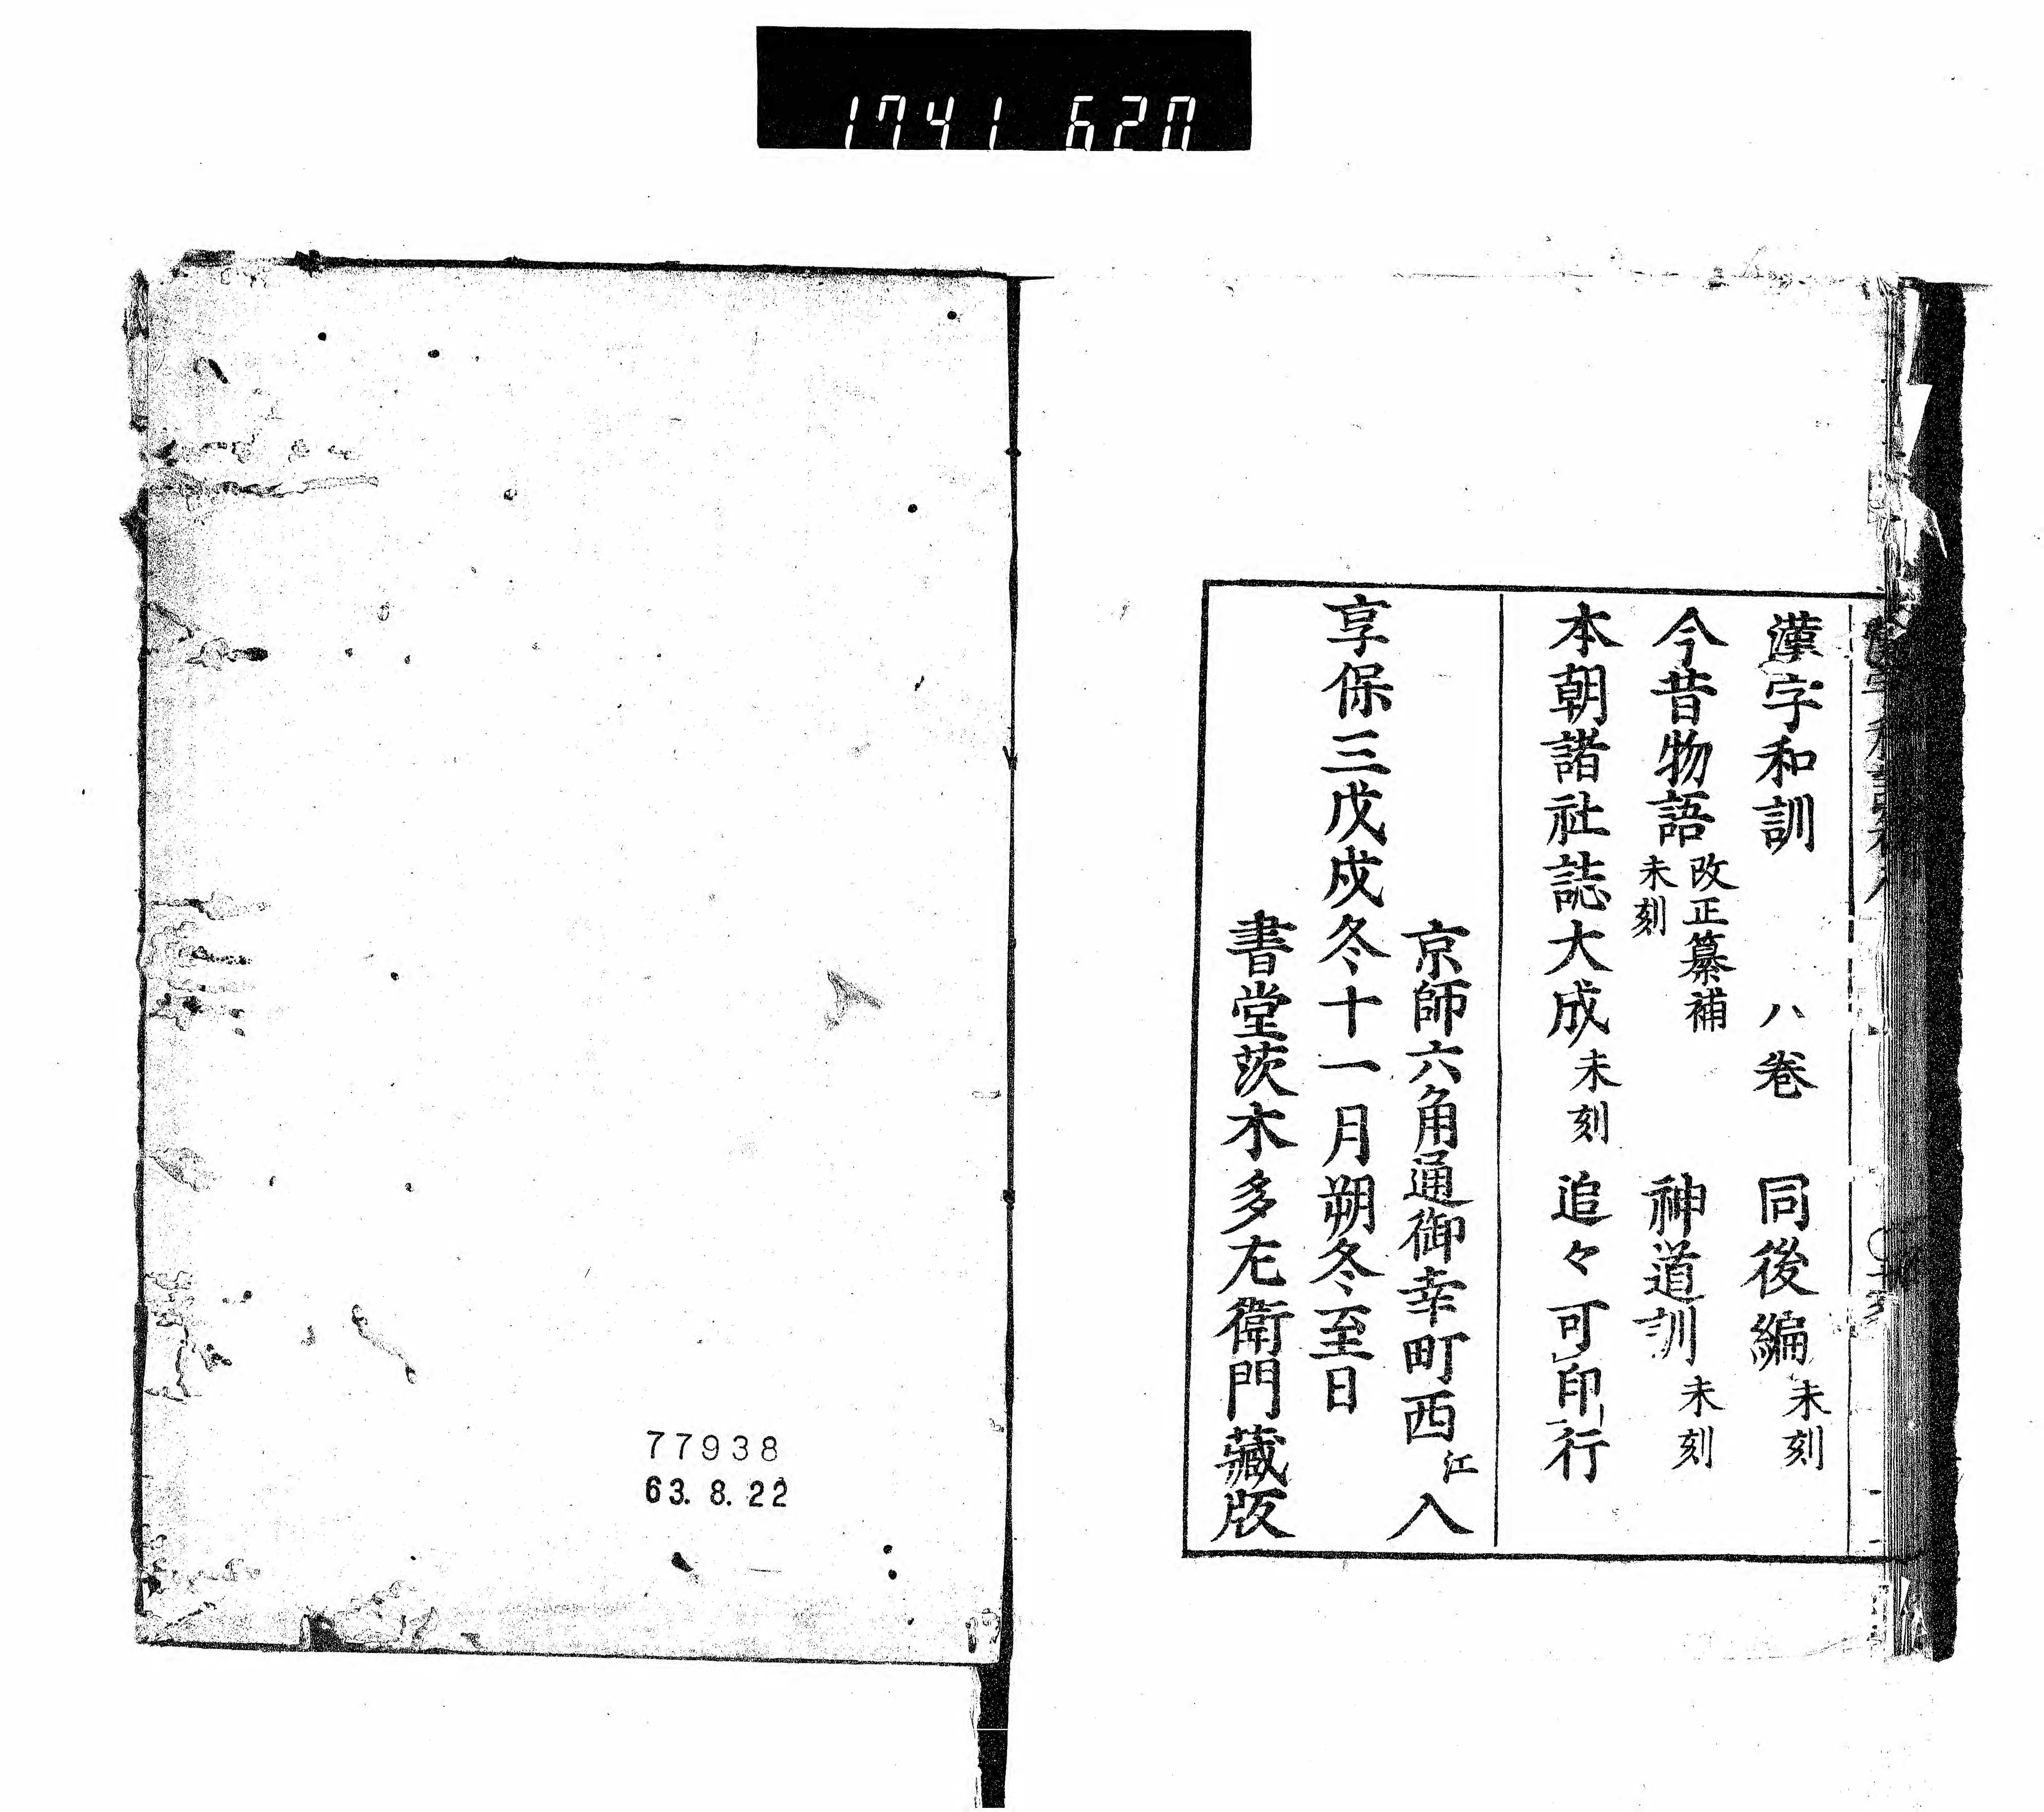 1741 620
漢字和訓 八卷 同後編 未刻
今昔物語 改正纂補 未刻 神道訓 未刻
本朝諸社誌大成 未刻 追々可印行
京師六角通御幸町西江入
享保三戊戌冬十一月朔冬至日
書堂茨木多左衛門藏版
77938
63. 8. 22